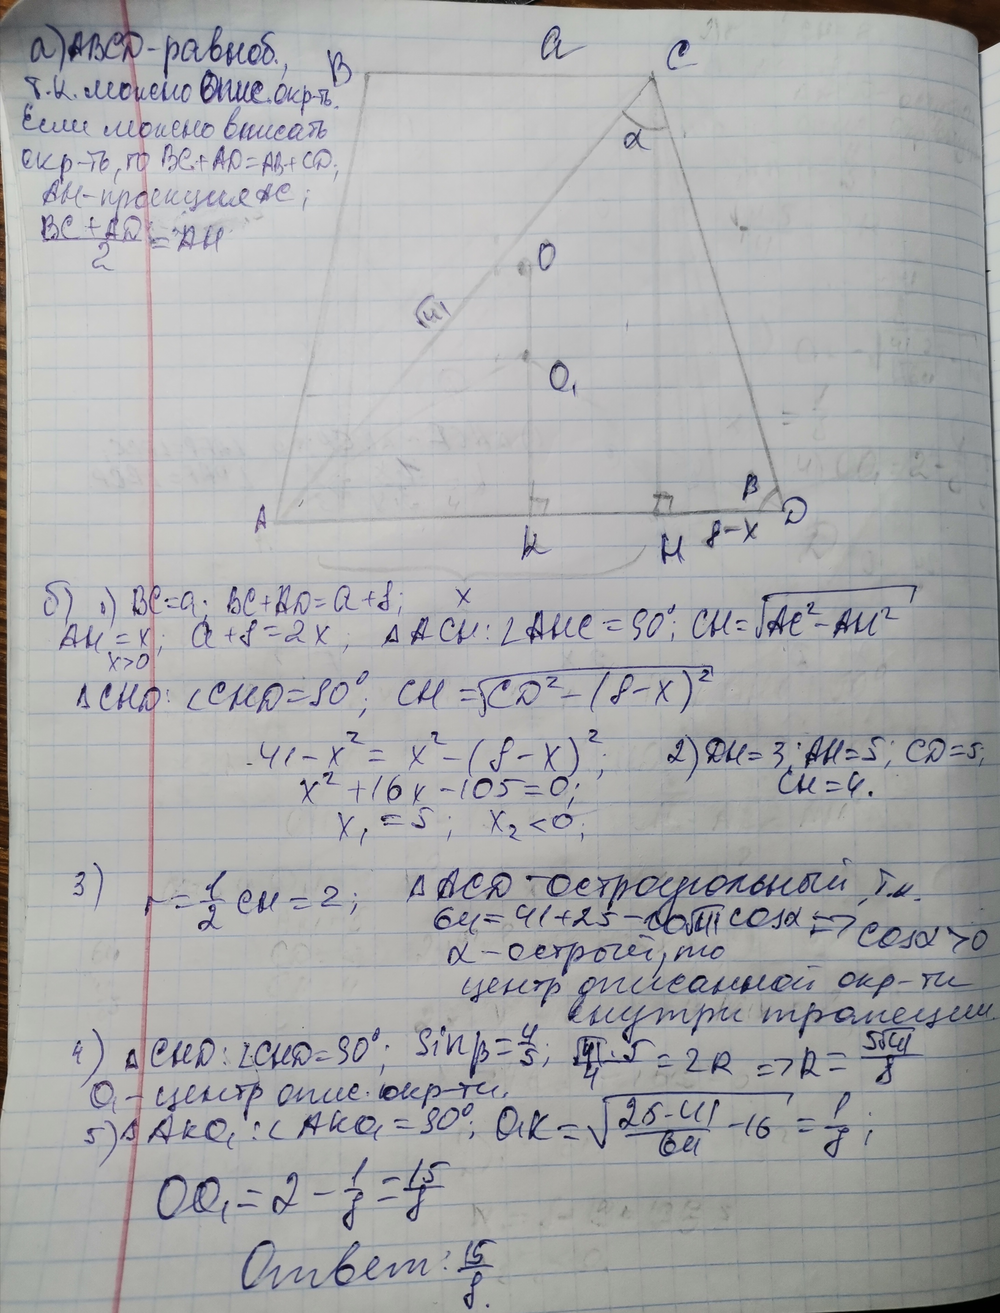 а) ABCD-равноб.,
т.к. можно опис. окр-ть.
Если можно вписать
окр-ть, то BC+AD=AB+CD;
AH-проекция AC;
(BC+AD)/2 = AH
a
B
C
α
√41
O
O₁
β
A
K
H
8-x
D
x
б) 1) BC=a; BC+AD=a+8;
AH=x; a+8=2x; ΔACH: ∠AHC=90°; CH=√(AC²-AH²)
x>0
ΔCHD: ∠CHD=90°; CH=√(CD²-(8-x)²)
41-x²=x²-(8-x)²; 2) DH=3; AH=5; CD=5;
x²+16x-105=0; CH=4.
x₁=5; x₂<0;
3) r=1/2 CH=2; ΔACD-остроугольный, т.к.
64=41+25-10√41 cosα => cosα>0
α-острый, то
центр описанной окр-ти
внутри трапеции.
4) ΔCHD: ∠CHD=90°; sinβ=4/5; √41·5/4=2R => R=5√41/8
O₁-центр опис. окр-ти.
5) Δ AKO₁: ∠AKO₁=90°; O₁K=√(25·41/64-16)=1/8;
OO₁=2-1/8=15/8
Ответ: 15/8.